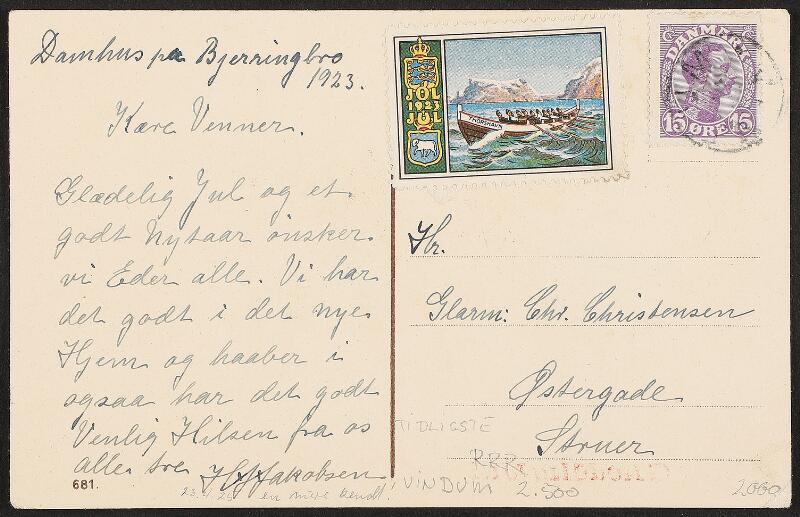 Damhus pa Bjerringbro
1923.
Kære Venner.
Glædelig Jul og et
godt Nytaar ønsker
vi Eder alle. Vi har
det godt i det nye
Hjem og haaber i
ogsaa har det godt
Venlig Hilsen fra os
alle tre Jakobsen
681.
JOL
1923
JUL
THORSHAVN
DANMARK
15 ØRE 15
Hr.
Glarm: Chr. Christensen
Østergade
Struer
TIDLIGSTE
RRR
VINDUM 2.500
2000
en mere kendt!